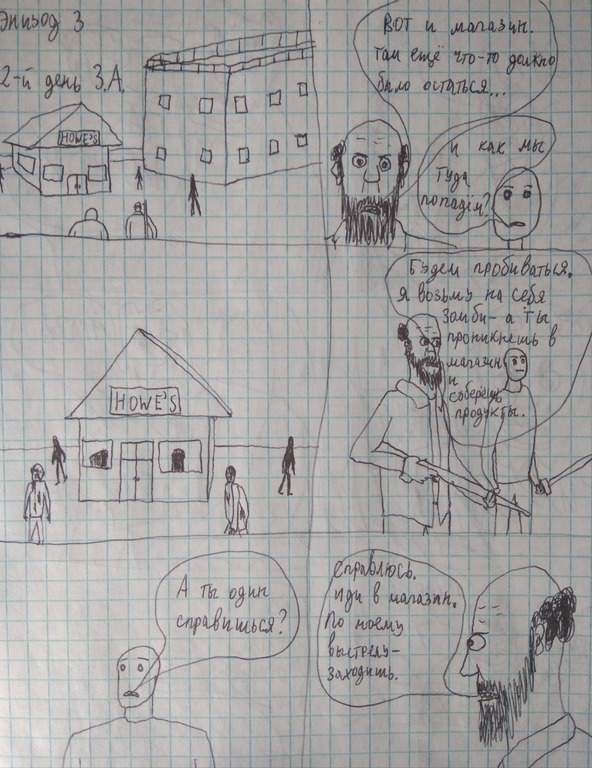 Эпизод 3
2-й день З.А.
HOWE'S
Вот и магазин.
Там ещё что-то должно
было остаться...
И как мы
туда
попадём?
HOWE'S
Будем пробиваться.
Я возьму на себя
зомби- а ты
проникнешь в
магазин
и
соберёшь
продукты.
А ты один
справишься?
Справлюсь.
Иди в магазин.
По моему
выстрелу-
заходишь.